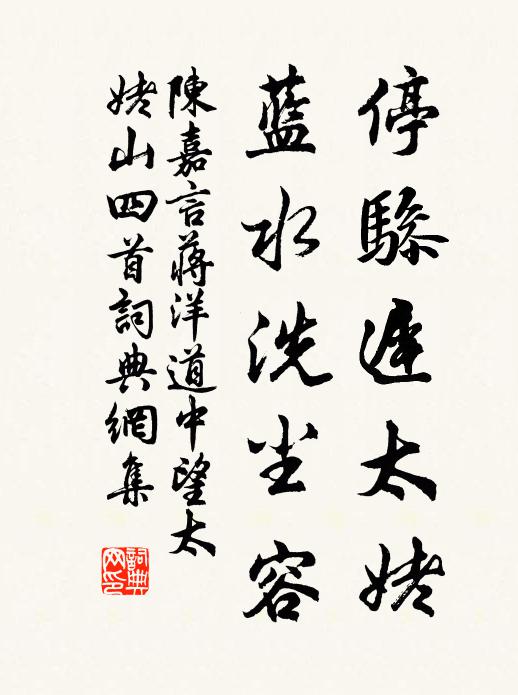 停驂遲太姥
蓝水洗尘容
陳嘉言蔣洋道中望太
姥山四首詞典網集
詞典
网印